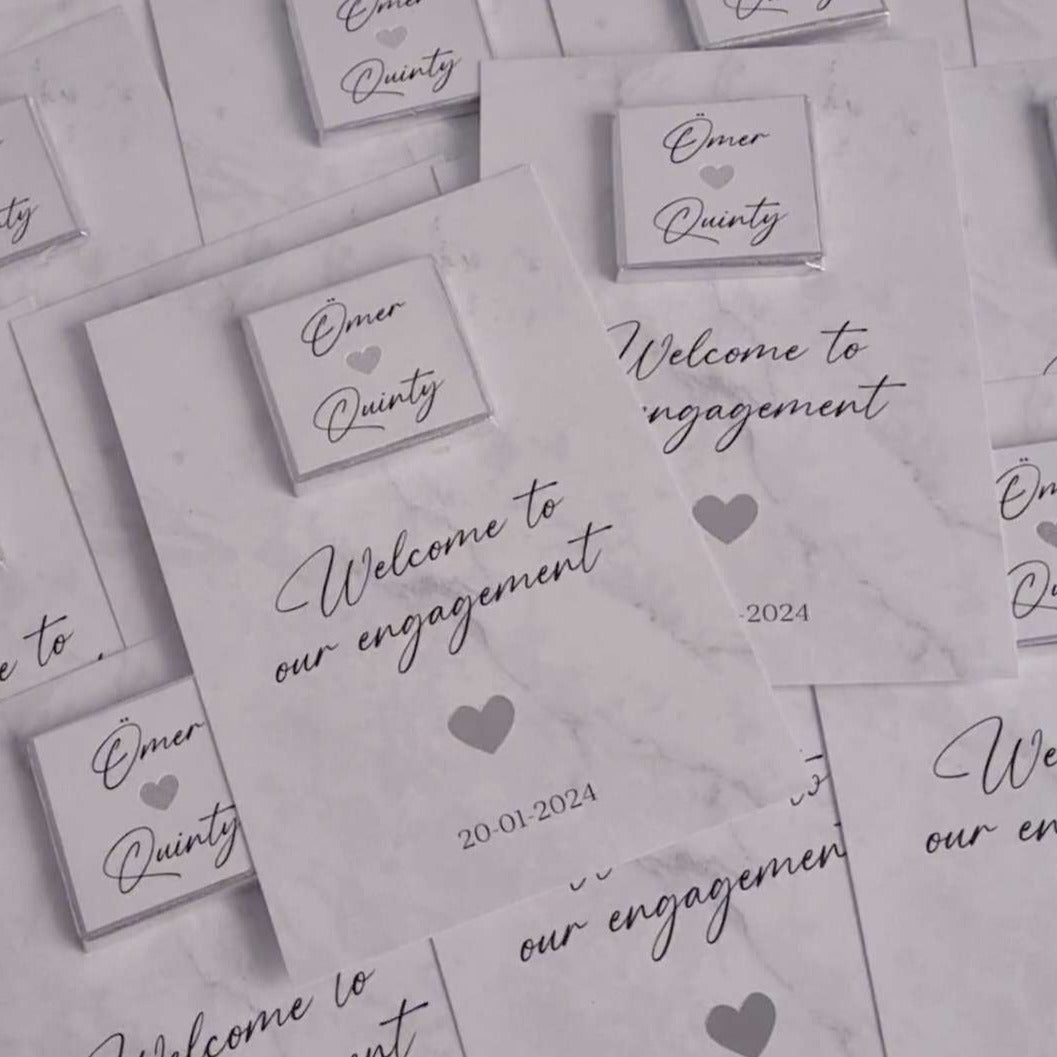 Ömer
Quinty
Ömer
Quinty
Welcome to
engagement
-2024
Ömer
Quinty
Welcome to
our engagement
20-01-2024
to
Ömer
Quinty
our
our engagement
Welcome to